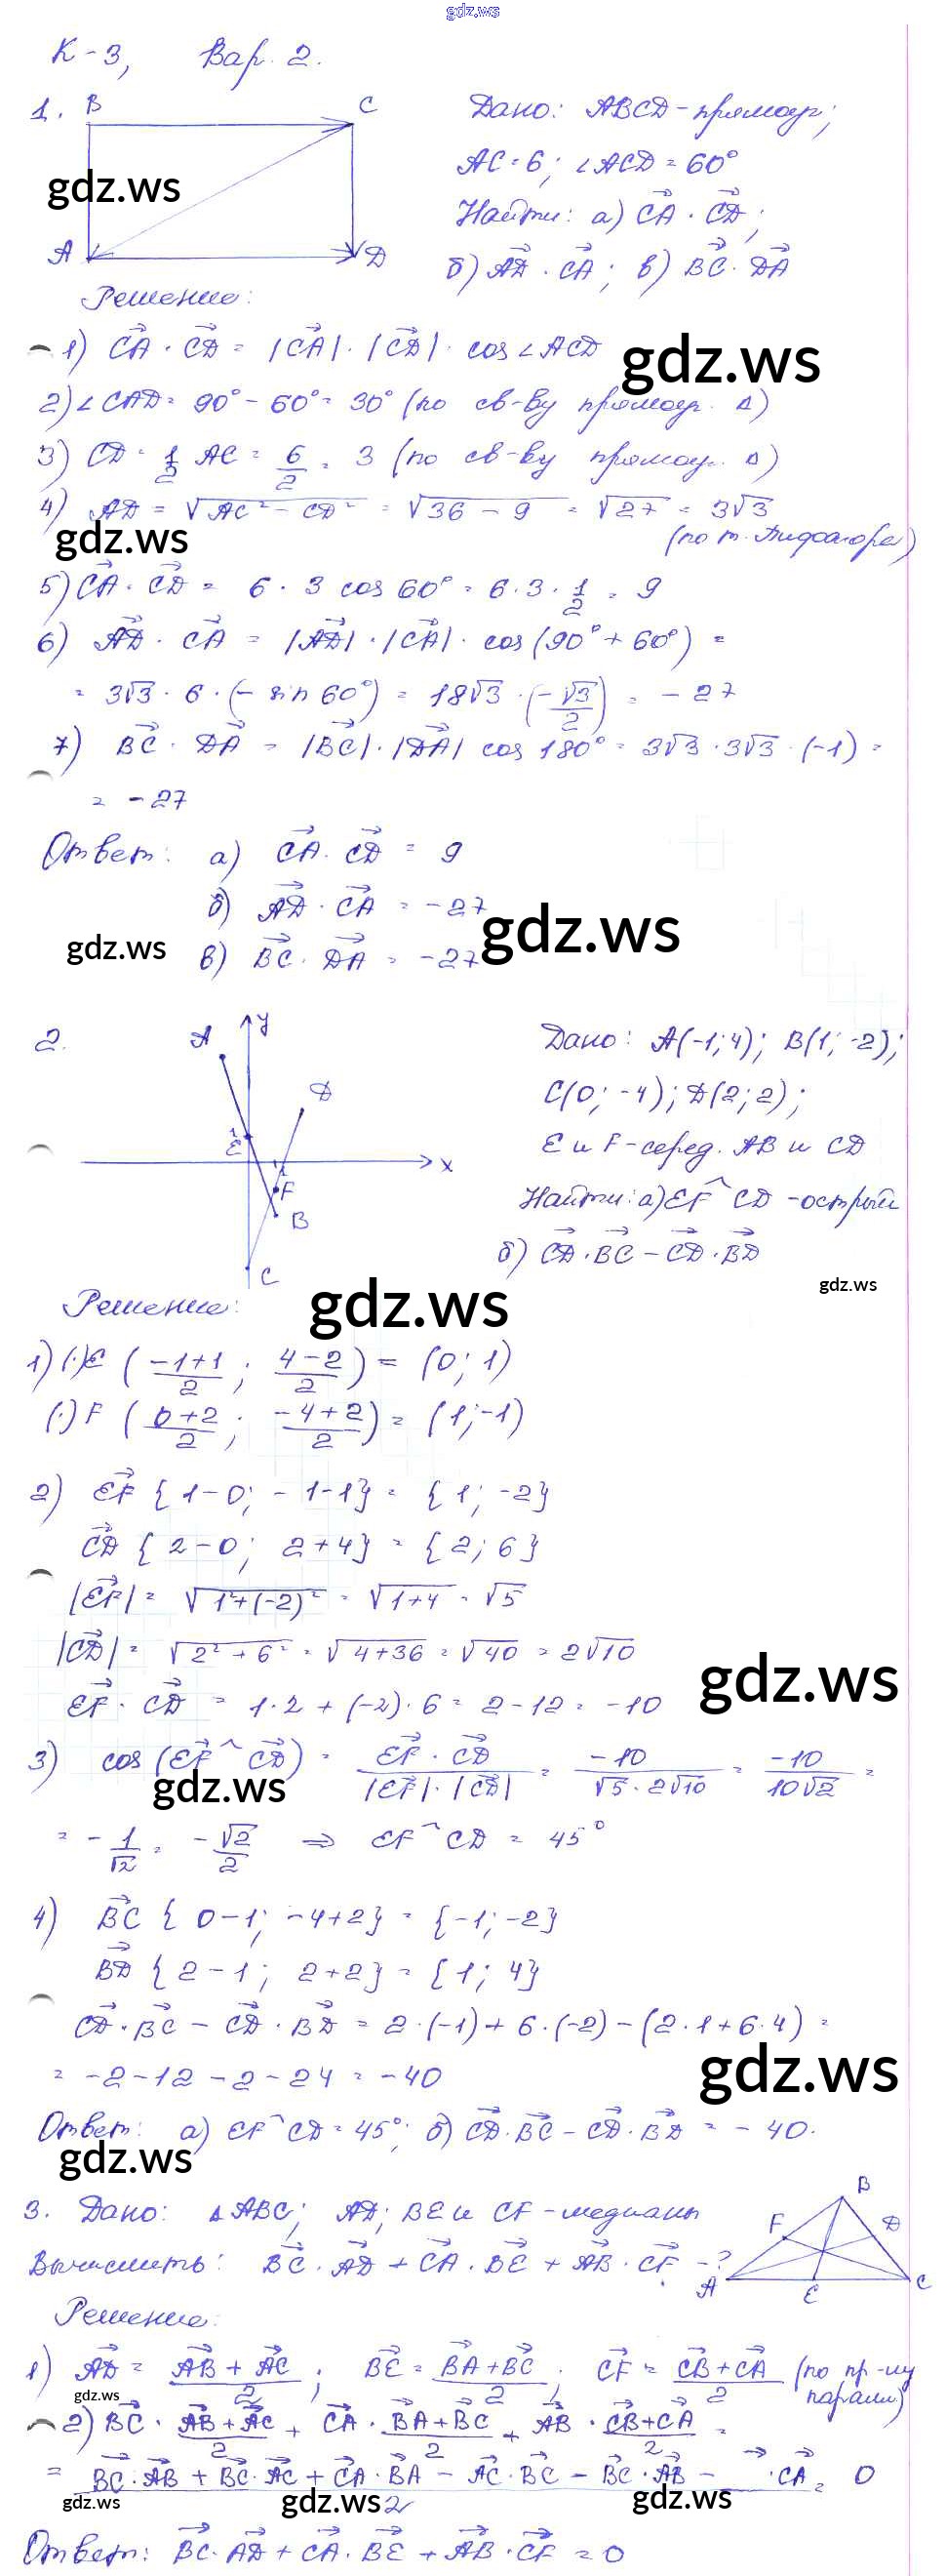 gdz.ws
К-3, Вар. 2.
1. B C
A D
Дано: ABCD-прямоуг;
AC=6; ∠ACD=60°
Найти: а) CA·CD;
б) AD·CA; в) BC·DA
gdz.ws
Решение:
1) CA·CD = |CA|·|CD|·cos∠ACD
gdz.ws
2) ∠CAD=90°-60°=30° (по св-ву прямоуг. Δ)
3) CD=1/2 AC=6/2=3 (по св-ву прямоуг. Δ)
4) AD=√(AC²-CD²)=√(36-9)=√27=3√3
(по т. Пифагора)
gdz.ws
5) CA·CD = 6·3 cos60°=6·3·1/2=9
6) AD·CA = |AD|·|CA|·cos(90°+60°)=
= 3√3·6·(-sin60°)=18√3·(-√3/2)=-27
7) BC·DA = |BC|·|DA| cos180°=3√3·3√3·(-1)=
= -27
Ответ: а) CA·CD = 9
б) AD·CA = -27
gdz.ws
в) BC·DA = -27
gdz.ws
2. A y
D
1
E
x
1
F
B
C
Дано: A(-1;4); B(1;-2);
C(0;-4); D(2;2);
E и F-серед. AB и CD
Найти: а) EF^CD -острый
б) CD·BC-CD·BD
gdz.ws
Решение:
gdz.ws
1) (·)E ((-1+1)/2; (4-2)/2)=(0;1)
(·)F ((0+2)/2; (-4+2)/2)=(1;-1)
2) EF {1-0; -1-1}={1;-2}
CD {2-0; 2+4}={2;6}
|EF|=√(1²+(-2)²)=√(1+4)=√5
|CD|=√(2²+6²)=√(4+36)=√40=2√10
gdz.ws
EF·CD = 1·2+(-2)·6=2-12=-10
3) cos(EF^CD)=(EF·CD)/(|EF|·|CD|)=-10/(√5·2√10)=-10/(10√2)=
gdz.ws
=-1/√2=-√2/2 ⇒ EF^CD=45°
4) BC {0-1; -4+2}={-1;-2}
BD {2-1; 2+2}={1;4}
CD·BC-CD·BD=2·(-1)+6·(-2)-(2·1+6·4)=
gdz.ws
=-2-12-2-24=-40
Ответ: а) EF^CD=45°; б) CD·BC-CD·BD=-40.
gdz.ws
3. Дано: ΔABC; AD; BE и CF-медианы
Вычислить: BC·AD+CA·BE+AB·CF-?
B
F D
A E C
Решение:
1) AD=(AB+AC)/2; BE=(BA+BC)/2; CF=(CB+CA)/2 (по пр-лу
парал)
gdz.ws
2) BC·(AB+AC)/2+CA·(BA+BC)/2+AB·(CB+CA)/2=
=(BC·AB+BC·AC+CA·BA-AC·BC-BC·AB- ·CA)/2=0
gdz.ws
gdz.ws
gdz.ws
Ответ: BC·AD+CA·BE+AB·CF=0